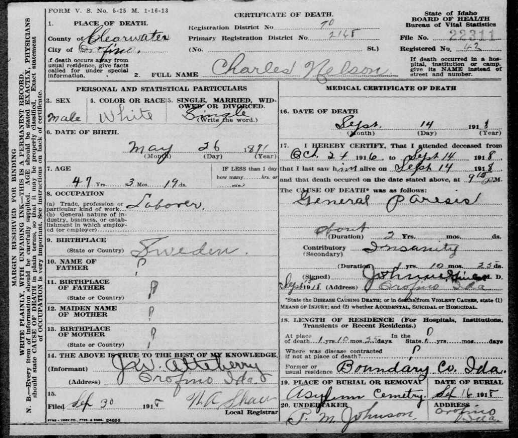 FORM V. S. No. 5-25 M. 1-16-13
CERTIFICATE OF DEATH
State of Idaho
BOARD OF HEALTH
Bureau of Vital Statistics
1. PLACE OF DEATH.
Registration District No. 70
File No. 22311
County of Clearwater
Primary Registration District No. 2168
Registered No. 62
City of Orofino
(No. St.)
If death occurs away from usual residence, give facts called for under special information.
If death occurred in a hospital, institution or camp, give its NAME instead of street and number.
2. FULL NAME Charles Nelson
PERSONAL AND STATISTICAL PARTICULARS
MEDICAL CERTIFICATE OF DEATH
3. SEX
male
4. COLOR OR RACE
White
5. SINGLE, MARRIED, WIDOWED OR DIVORCED.
Single
(Write the word.)
6. DATE OF BIRTH.
May 26
(Month) (Day) (Year)
7. AGE
47 Yrs. 3 Mos. 19 ds.
IF LESS than 1 day how many
8. OCCUPATION
(a) Trade, profession or particular kind of work
Laborer
(b) General nature of industry, business, or establishment in which employed
9. BIRTHPLACE
(State or Country)
Sweden.
10. NAME OF FATHER
?
11. BIRTHPLACE OF FATHER
(State or Country)
?
12. MAIDEN NAME OF MOTHER
?
13. BIRTHPLACE OF MOTHER
(State or Country)
?
14. THE ABOVE IS TRUE TO THE BEST OF MY KNOWLEDGE.
(Informant) J.W. Atteberry
(Address) Orofino Ida
15.
Filed Sep 30 1918
Local Registrar
16. DATE OF DEATH
Sept. 14 1918
(Month) (Day) (Year)
17. I HEREBY CERTIFY, That I attended deceased from
Oct. 21 1916 to Sept 14 1918
that I last saw him alive on Sept 14 1918
and that death occurred on the date stated above, at
The CAUSE OF DEATH was as follows:
General Paresis
about
(Duration) Yrs. mos. ds.
Contributory Insanity
(Secondary)
(Duration) 1 yrs. 10 mos. ds.
(Signed) M. D.
(Address) Orofino Ida
State the DISEASE CAUSING DEATH; or in deaths from VIOLENT CAUSES, state (1) MEANS OF INJURY; and (2) whether ACCIDENTAL, SUICIDAL OR HOMICIDAL.
18. LENGTH OF RESIDENCE (For Hospitals, Institutions, Transients or Recent Residents.)
At place of death 1 yrs 10 mos ds. In the State ? yrs. mos. ds.
Where was disease contracted if not at place of death? ?
Former or usual residence Boundary Co. Ida.
19. PLACE OF BURIAL OR REMOVAL
Asylum Cemetry
DATE OF BURIAL
Sep 16 1918
20. UNDERTAKER
Johnson
ADDRESS
Orofino Ida
MARGIN RESERVED FOR BINDING
WRITE PLAINLY, WITH UNFADING INK—THIS IS A PERMANENT RECORD.